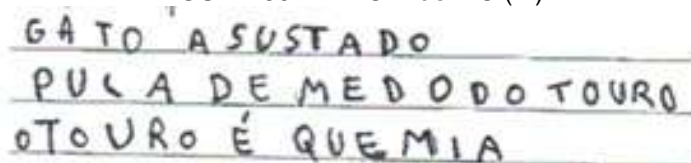 GATO ASUSTADO
PULA DE MEDO DO TOURO
O TOURO É QUE MIA